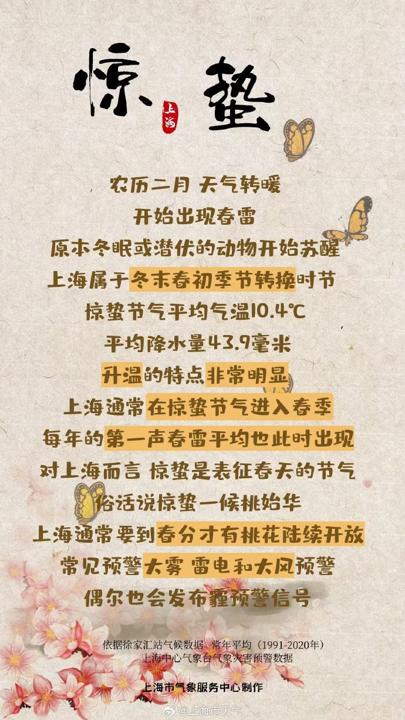 惊蛰
上海
农历二月 天气转暖
开始出现春雷
原本冬眠或潜伏的动物开始苏醒
上海属于冬末春初季节转换时节
惊蛰节气平均气温10.4℃
平均降水量43.9毫米
升温的特点非常明显
上海通常在惊蛰节气进入春季
每年的第一声春雷平均也此时出现
对上海而言 惊蛰是表征春天的节气
俗话说惊蛰一候桃始华
上海通常要到春分才有桃花陆续开放
常见预警大雾 雷电和大风预警
偶尔也会发布霾预警信号
依据徐家汇站气候数据、常年平均（1991-2020年）
上海中心气象台气象灾害预警数据
上海市气象服务中心制作